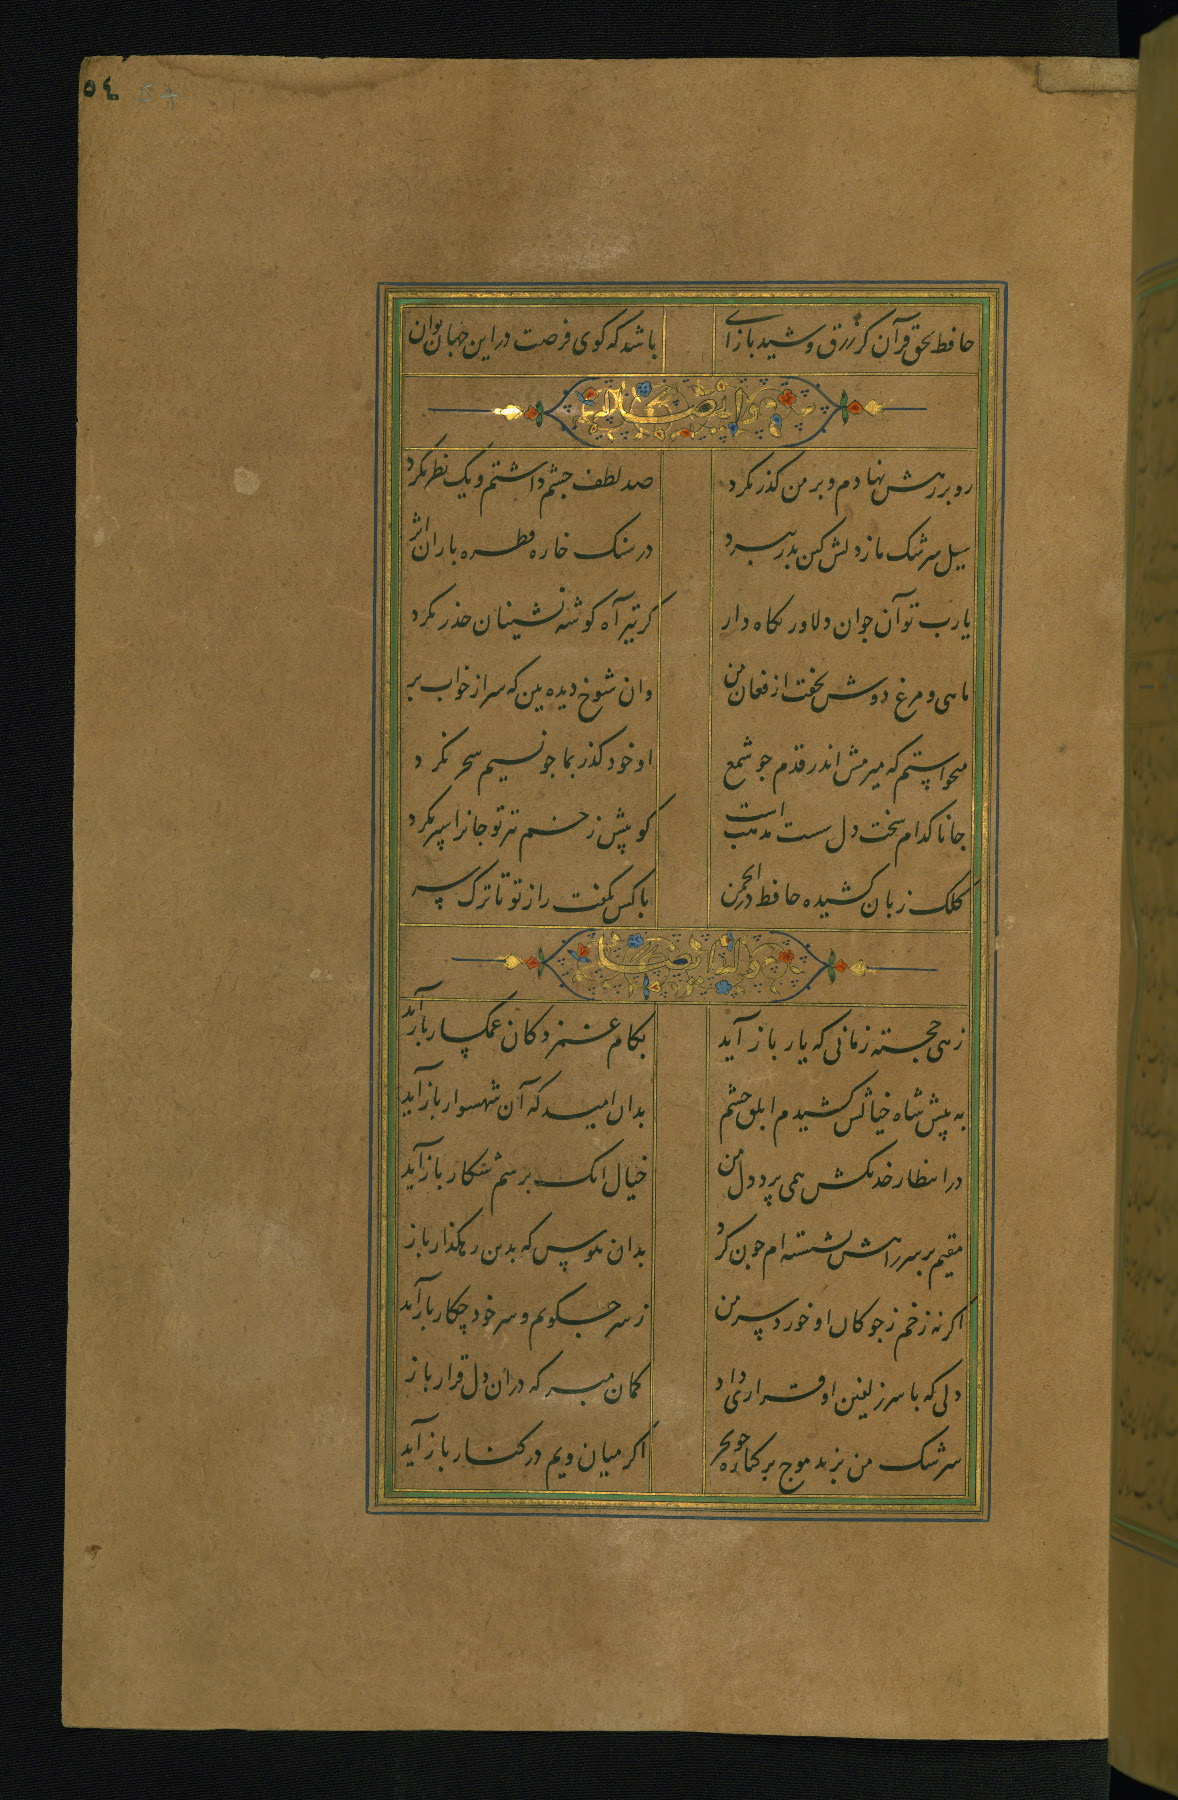 ٥٤
حافظ بحق قرآن کز زرق و شید بازآی
باشد که کوی فرصت در این جهان توان
وله ایضا
رو بر رهش نهادم و بر من کذر نکرد
صد لطف چشم داشتم و یک نظر نکرد
سیل سرشک ما ز دلش کین بدر نبرد
در سنک خاره قطره باران اثر
یارب تو آن جوان دلاور نکاه دار
کز تیر آه کوشه نشینان حذر نکرد
ماهی و مرغ دوش نخفت از فغان من
وان شوخ دیده بین که سر از خواب بر
میخواستم که میرمش اندر قدم جو شمع
او خود کذر بما جو نسیم سحر نکرد
جانا کدام سخت دل سست مذهب است
کو پیش زخم تیر تو جانرا سپر نکرد
کلک زبان کشیده حافظ در انجمن
با کس نکفت راز تو تا ترک سر
وله ایضا
زهی خجسته زمانی که یار باز آید
بکام غمزدکان غمکسار باز آید
به پیش شاه خیالش کشیدم ابلق چشم
بدان امید که آن شهسوار باز آید
در انتظار خدنکش همی پرد دل من
خیال انک برسم شکار باز آید
مقیم بر سر راهش نشسته ام جون کرد
بدان هوس که بدین رهکذار باز
اکر نه زخم ز جوکان او خورد سر من
ز سر جکویم و سر خود چکار باز آید
دلی که با سر زلفین او قراری داد
کمان مبر که دران دل قرار باز
سرشک من نزند موج بر کناره جو بحر
اکر میان ویم در کنار باز آید